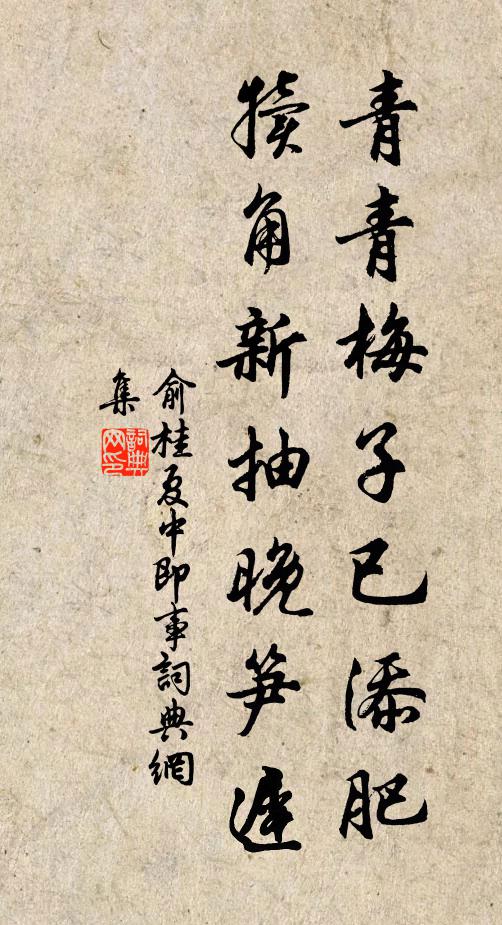 青青梅子已添肥
犢角新抽晚笋遲
俞桂夏中即事詞典網
集
詞典
网印